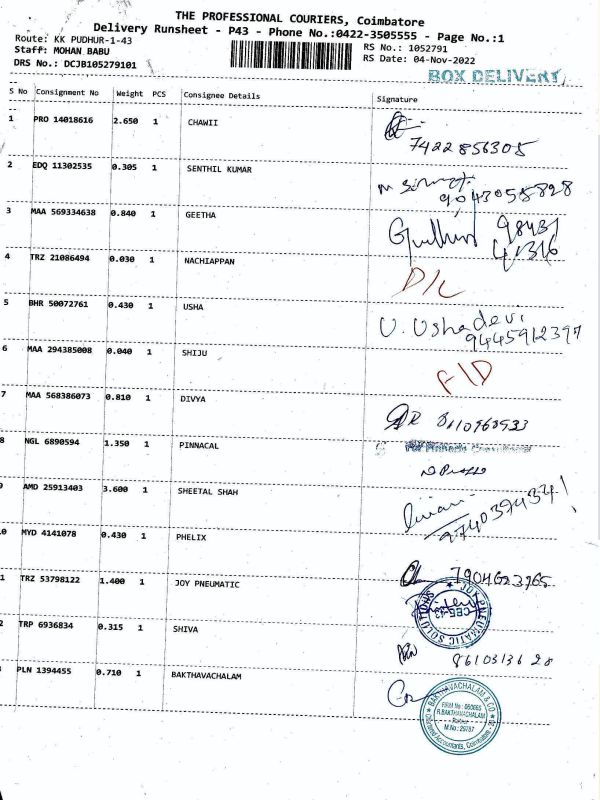 THE PROFESSIONAL COURIERS, Coimbatore
Delivery Runsheet - P43 - Phone No.:0422-3505555 - Page No.:1
Route: KK PUDHUR-1-43
RS No.: 1052791
Staff: MOHAN BABU
RS Date: 04-Nov-2022
DRS No.: DCJB105279101
BOX DELIVERY
S No Consignment No Weight PCS Consignee Details Signature
1 PRO 14018616 2.650 1 CHAWII
7422856305
2 EDQ 11302535 0.305 1 SENTHIL KUMAR
9043058828
3 MAA 569334638 0.840 1 GEETHA
98431
41316
4 TRZ 21086494 0.030 1 NACHIAPPAN
D/L
5 BHR 50072761 0.430 1 USHA
U. Ushadevi
9445912397
6 MAA 294385008 0.040 1 SHIJU
F/D
7 MAA 568386073 0.810 1 DIVYA
8 NGL 6890594 1.350 1 PINNACAL
9 AMD 25913403 3.600 1 SHEETAL SHAH
0 MYD 4141078 0.430 1 PHELIX
7904623965
1 TRZ 53798122 1.400 1 JOY PNEUMATIC
JOY PNEUMATIC SOLUTIONS
CBE-12
2 TRP 6936834 0.315 1 SHIVA
86103136 28
PLN 1394455 0.710 1 BAKTHAVACHALAM
BAKTHAVACHALAM & CO
R.BAKTHAVACHALAM
M.No.: 29787
Chartered Accountants, Coimbatore